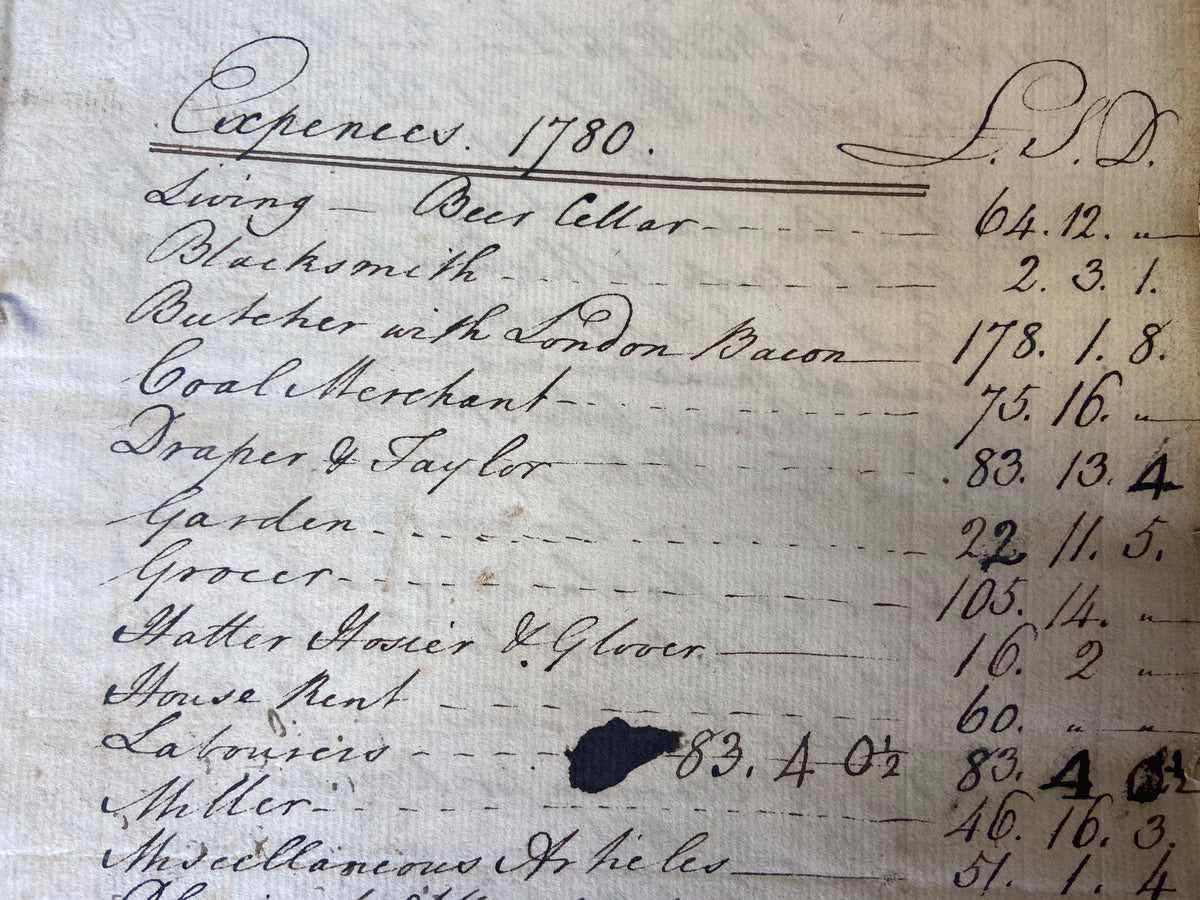 Expences. 1780. L. S. D.
Living — Beer Cellar 64. 12. "
Blacksmith 2. 3. 1.
Butcher with London Bacon 178. 1. 8.
Coal Merchant 75. 16. "
Draper & Taylor 83. 13. 4
Garden 22 11. 5.
Grocer 105. 14. "
Hatter Hosier & Glover 16. 2 "
House Rent 60. " "
Labourers 83. 4 0½ 83. 4 0½
Miller 46. 16. 3.
Miscellaneous Articles 51. 1. 4